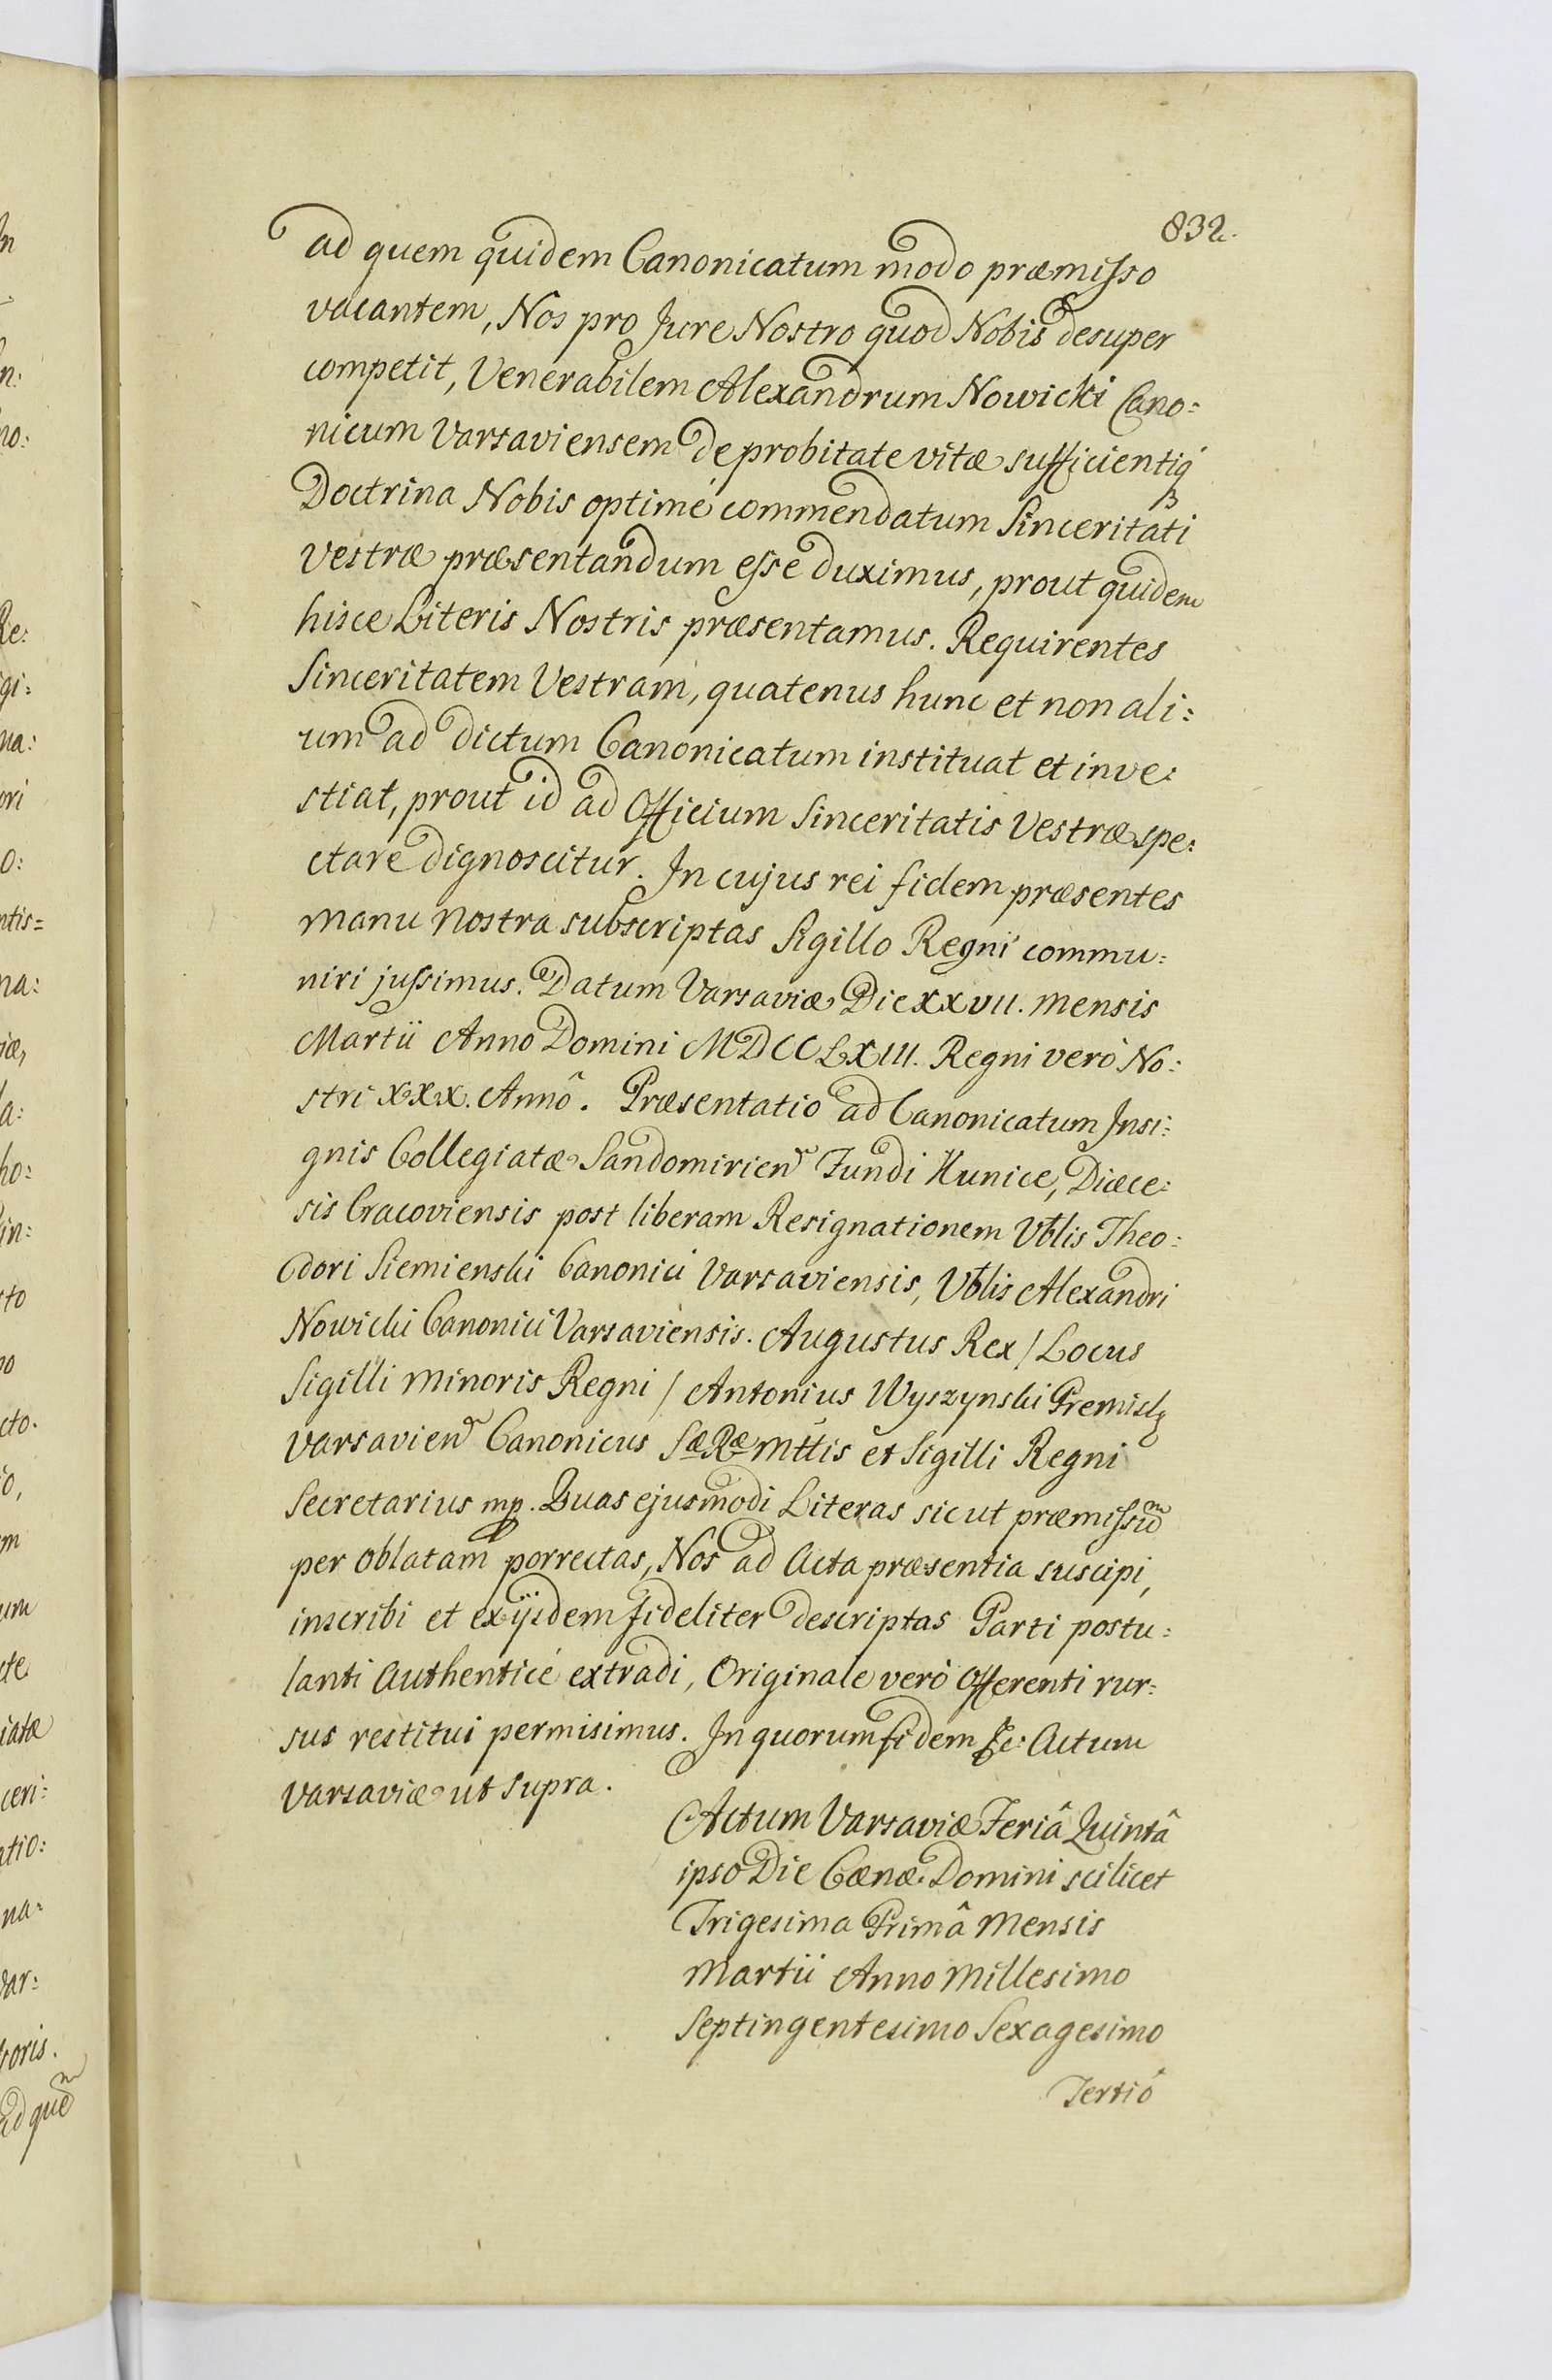 832.
ad quem quidem Canonicatum modo præmisso
vacantem, Nos pro Jure Nostro quod Nobis desuper
competit, Venerabilem Alexandrum Nowicki Cano:
nicum Varsaviensem de probitate vitæ sufficientiq́
Doctrina Nobis optimé commendatum Sinceritati
Vestræ præsentandum esse duximus, prout quidem
hisce Literis Nostris præsentamus. Requirentes
Sinceritatem Vestram, quatenus hunc et non ali:
um ad dictum Canonicatum instituat et inve:
stiat, prout id ad Officium Sinceritatis Vestræ spe:
ctare dignoscitur. In cujus rei fidem præsentes
manu nostra subscriptas Sigillo Regni commu:
niri jussimus. Datum Varsaviæ Die XXVII. mensis
Martii Anno Domini MDCCLXIII. Regni verò No:
stri XXX. Annô. Præsentatio ad Canonicatum Insi:
gnis Collegiatæ Sandomirien Fundi Kunice, Diæce:
sis Cracoviensis post liberam Resignationem Vblis Theo:
dori Siemienski Canonici Varsaviensis, Vblis Alexandri
Nowicki Canonici Varsaviensis. Augustus Rex / Locus
Sigilli minoris Regni / Antonius Wyszynski Premislę
Varsavien Canonicus Sæ Ræ Mttis et Sigilli Regni
Secretarius mp. Quas ejusmodi Literas sicut præmissum
per oblatam porrectas, Nos ad Acta præsentia suscipi,
inscribi et ex ijsdem fideliter descriptas Parti postu:
lanti Authenticé extradi, Originale verò Offerenti rur:
sus restitui permisimus. In quorum fidem &c: Actum
Varsaviæ ut supra.
Actum Varsaviæ Feriâ Quintâ
ipso Die Cænæ Domini scilicet
Trigesima Primâ Mensis
Martii Anno Millesimo
Septingentesimo Sexagesimo
Tertiô